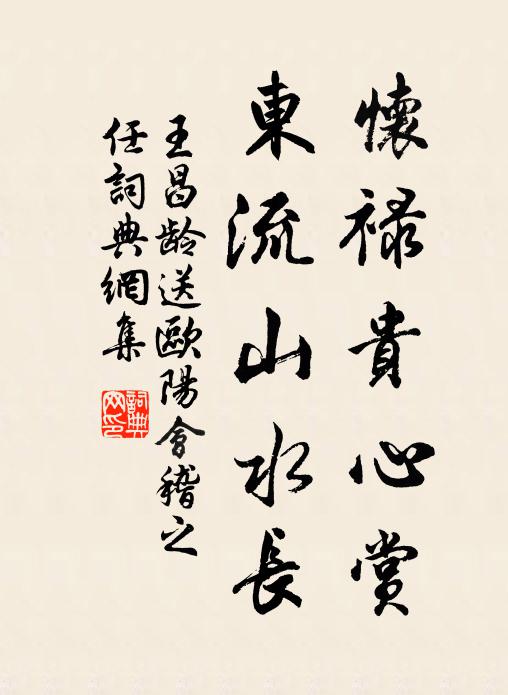 懷禄貴心賞
東流山水長
王昌龄送歐陽會稽之
任詞典網集
詞典
网印